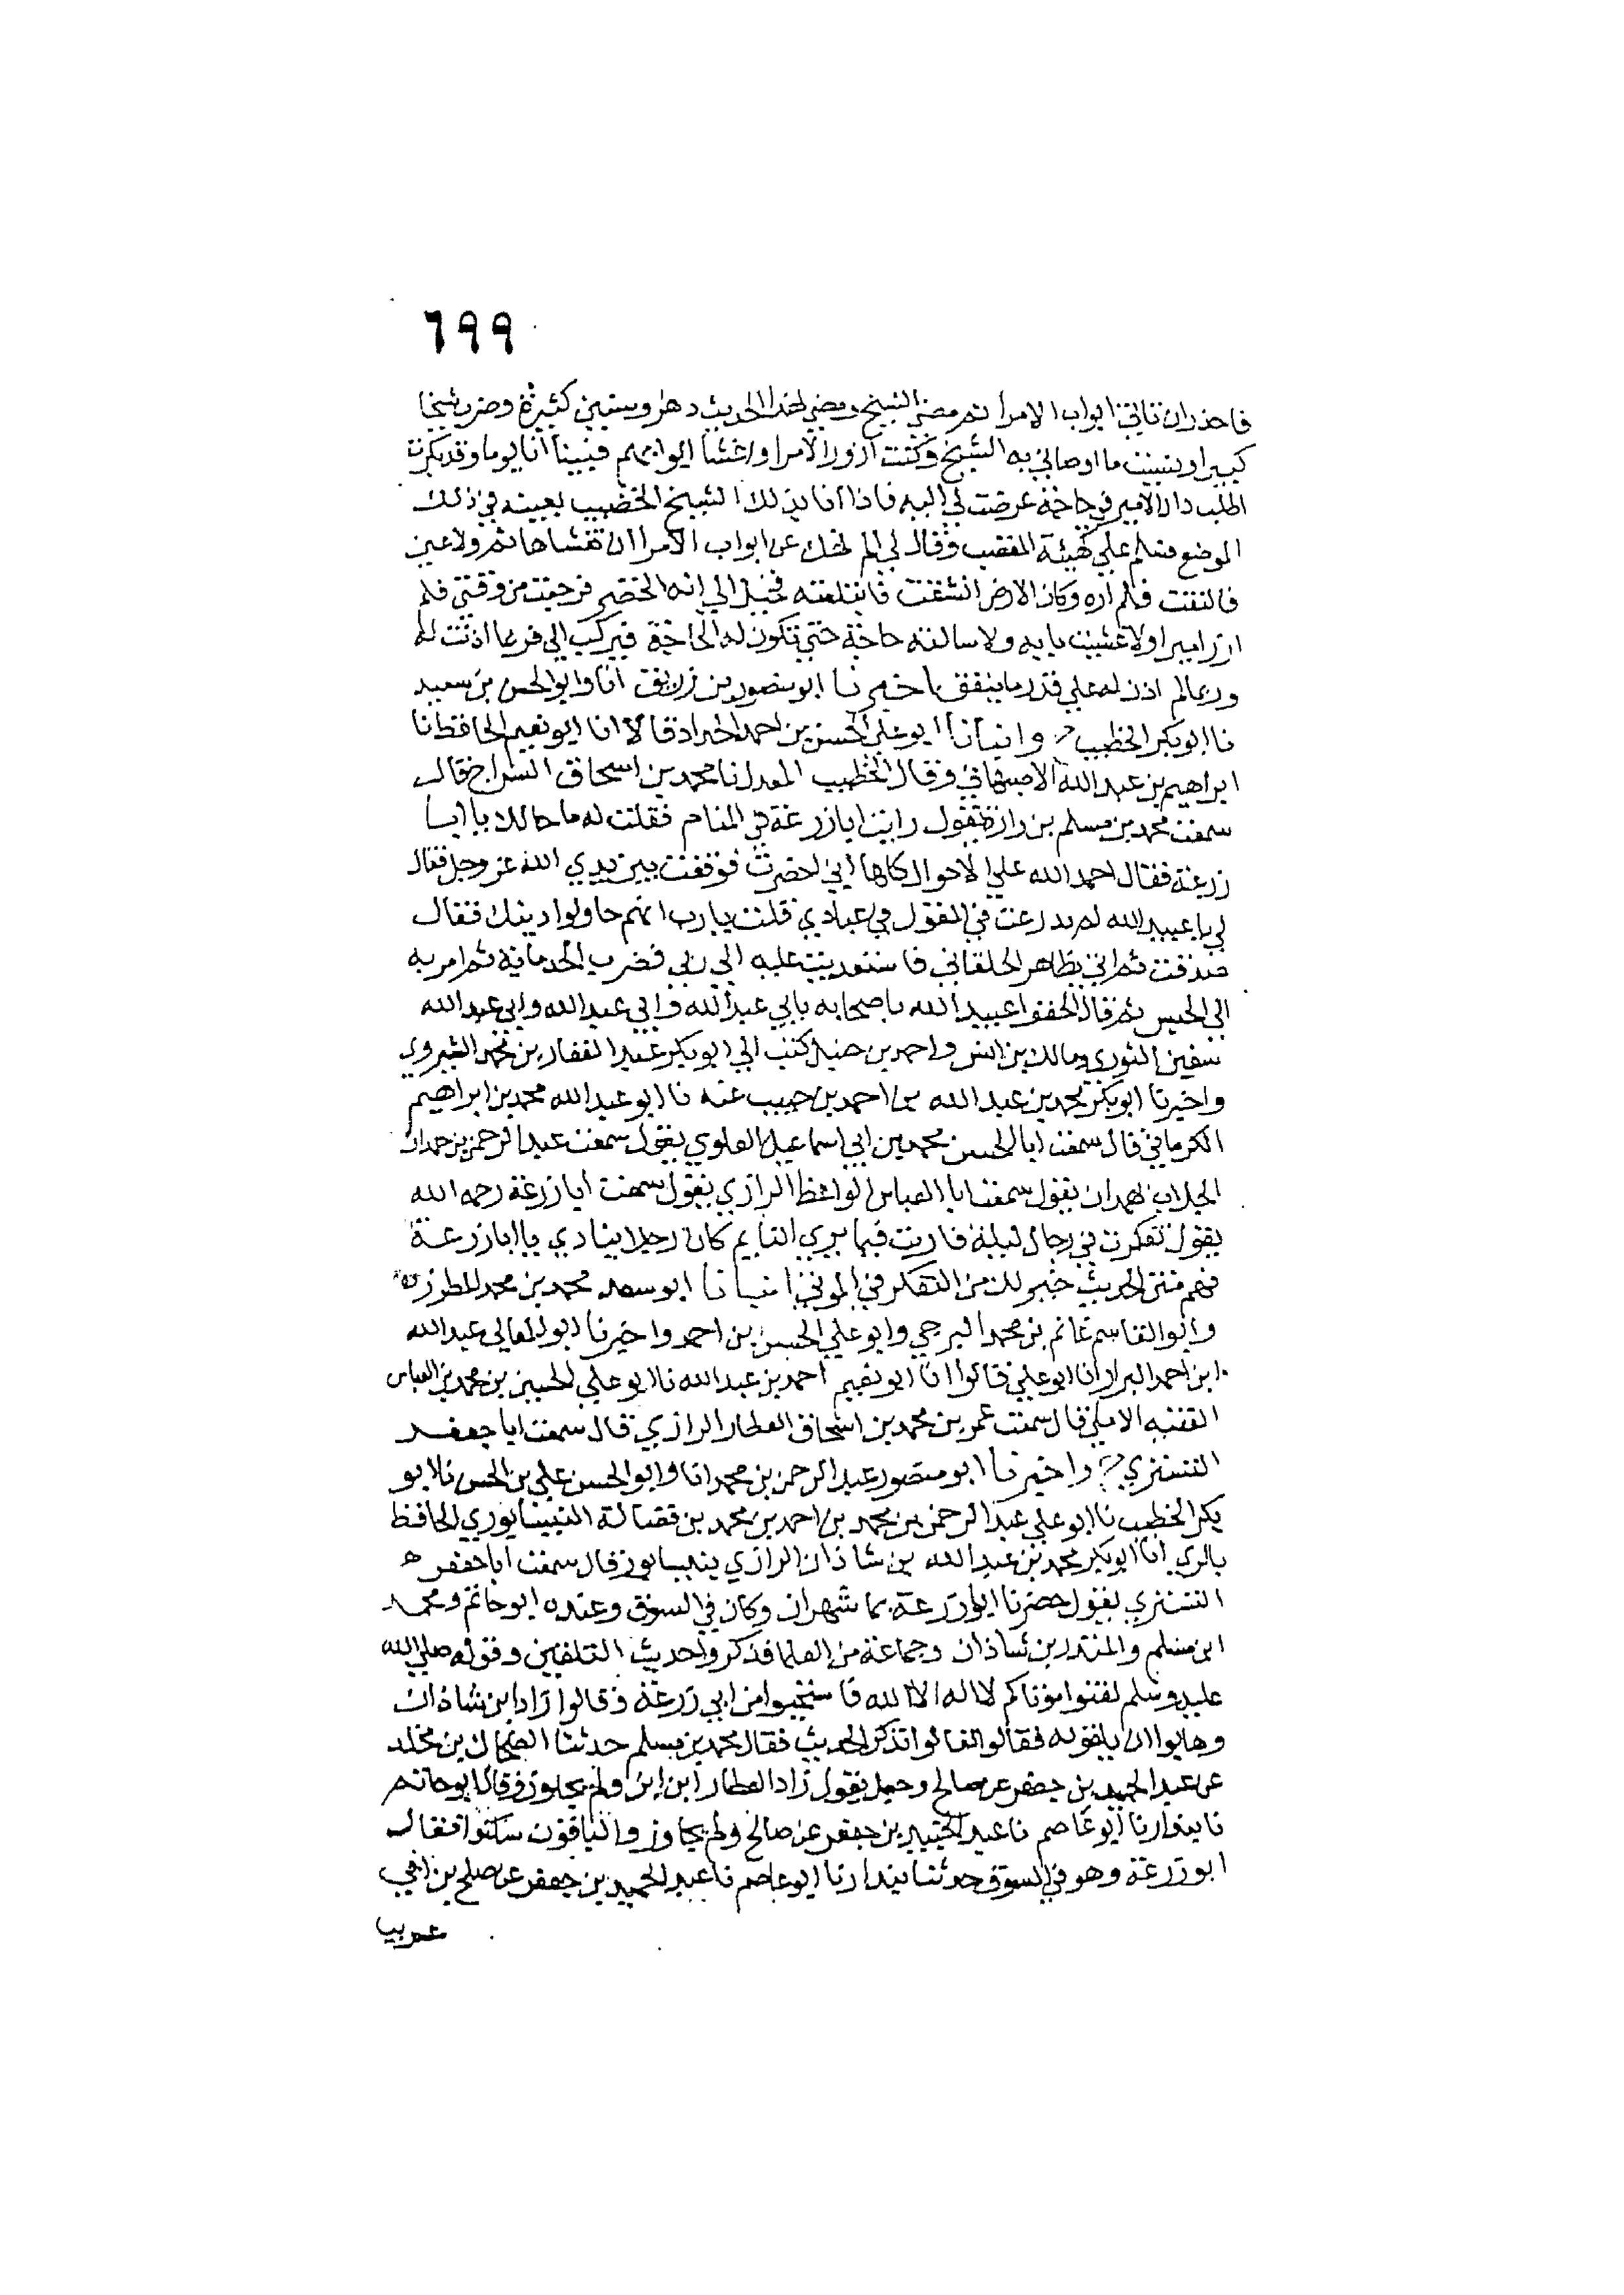 ٦٩٩
فاحذر ان تاتي ابواب الامرا ثم مضى الشيخ ومضى لهذا الحديث دهر وسنين كثيرة وصرت شيخا
كبيرا ونسيت ما اوصاني به الشيخ وكنت ازور الامرا واغشا ابوابهم فبينا انا يوما وقد بكرت
اطلب دار الامير في حاجة عرضت لي اليه فاذا انا بذلك الشيخ الخضيب بعينه في ذلك
الموضع فسلم علي كهيئة المغضب وقال لي الم انهك عن ابواب الامرا ان تغشاها ثم ولا عني
فالتفت فلم اره وكان الارض انشقت فابتلعته فخيل الي انه الخضر فرجعت من وقتي فلم
ازر اميرا ولا غشيت بابه ولا سالته حاجة حتى تكون له الحاجة فيركب الي فربما اذنت له
وربما لم اذن له على قدر ما يتفق اخبرنا ابو منصور بن زريق انا وابو الحسن بن سعيد
نا ابو بكر الخطيب وانبانا ابو علي الحسن بن احمد الحداد قالا انا ابو نعيم الحافظ نا
ابراهيم بن عبد الله الاصبهاني وقال الخطيب المعدل نا محمد بن اسحاق السراج قال
سمعت محمد بن مسلم بن وارة يقول رايت ابا زرعة في المنام فقلت له ما حالك يا ابا
زرعة فقال احمد الله على الاحوال كلها اني احضرت فوقفت بين يدي الله عز وجل فقال
لي يا عبيد الله لم تدرعت في القول في عبادي قلت يا رب انهم حاولوا دينك فقال
صدقت ثم اتي بطاهر الخلقاني فاستعديت عليه الى ربي فضرب الحد مائة ثم امر به
الى الحبس ثم قال الحقوا عبيد الله باصحابه بابي عبد الله وابي عبد الله وابي عبد الله
سفين الثوري ومالك بن انس واحمد بن حنبل كتب الي ابو بكر عبد الغفار بن محمد الشيروي
واخبرنا ابو بكر محمد بن عبد الله بن احمد بن حبيب عنه نا ابو عبد الله محمد بن ابراهيم
الكرماني قال سمعت ابا الحسن محمد بن ابي اسماعيل العلوي يقول سمعت عبد الرحمن بن حمدان
الجلاب بهمدان يقول سمعت ابا العباس الواعظ الرازي يقول سمعت ابا زرعة رحمه الله
يقول تفكرت في رجال ليلة فاريت فيما يرى النايم كان رجلا ينادي يا ابا زرعة
فهم متن الحديث خير لك من التفكر في الموتى انبانا ابو سعد محمد بن محمد المطرز
وابو القاسم غانم بن محمد البرجي وابو علي الحسن بن احمد واخبرنا ابو المعالي عبد الله
ابن احمد البزاز انا ابو علي قالوا انا ابو نعيم احمد بن عبد الله نا ابو علي الحسين بن محمد بن العباس
الفقيه الاملي قال سمعت عمر بن محمد بن اسحاق العطار الرازي قال سمعت ابا جعفر
التستري واخبرنا ابو منصور عبد الرحمن بن محمد انا وابو الحسن علي بن الحسن نا ابو
بكر الخطيب نا ابو علي عبد الرحمن بن محمد بن احمد بن محمد بن فضالة النيسابوري الحافظ
بالري انا ابو بكر محمد بن عبد الله بن شاذان الرازي بنيسابور قال سمعت ابا جعفر
التستري يقول حضرنا ابا زرعة بما شهران وكان في السوق وعنده ابو حاتم ومحمد
ابن مسلم والمنذر بن شاذان وجماعة من العلما فذكروا حديث التلقين وقوله صلى الله
عليه وسلم لقنوا موتاكم لا اله الا الله فاستحيوا من ابي زرعة وقالوا زاد ابن شاذان
وهابوا ان يلقنوه فقالوا تعالوا نذكر الحديث فقال محمد بن مسلم حدثنا الضحاك بن مخلد
عن عبد الحميد بن جعفر عن صالح وجعل يقول زاد العطار ابن ابن ولم يجاوز وقال ابو حاتم
نا بندار نا ابو عاصم نا عبد الحميد بن جعفر عن صالح ولم يجاوز والباقون سكتوا فقال
ابو زرعة وهو في السوق حدثنا بندار نا ابو عاصم نا عبد الحميد بن جعفر عن صالح بن ابي
عريب